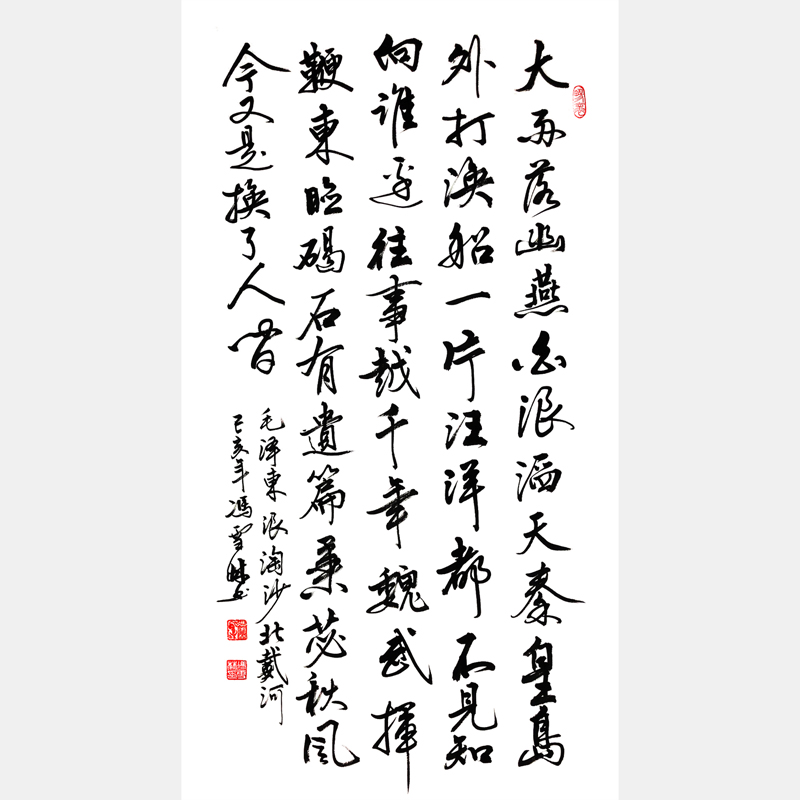 大雨落幽燕白浪滔天秦皇島
外打漁船一片汪洋都不見知
向誰邊往事越千年魏武揮
鞭東臨碣石有遺篇蕭瑟秋風
今又是換了人間
毛泽東浪淘沙北戴河
己亥年馮雪林书